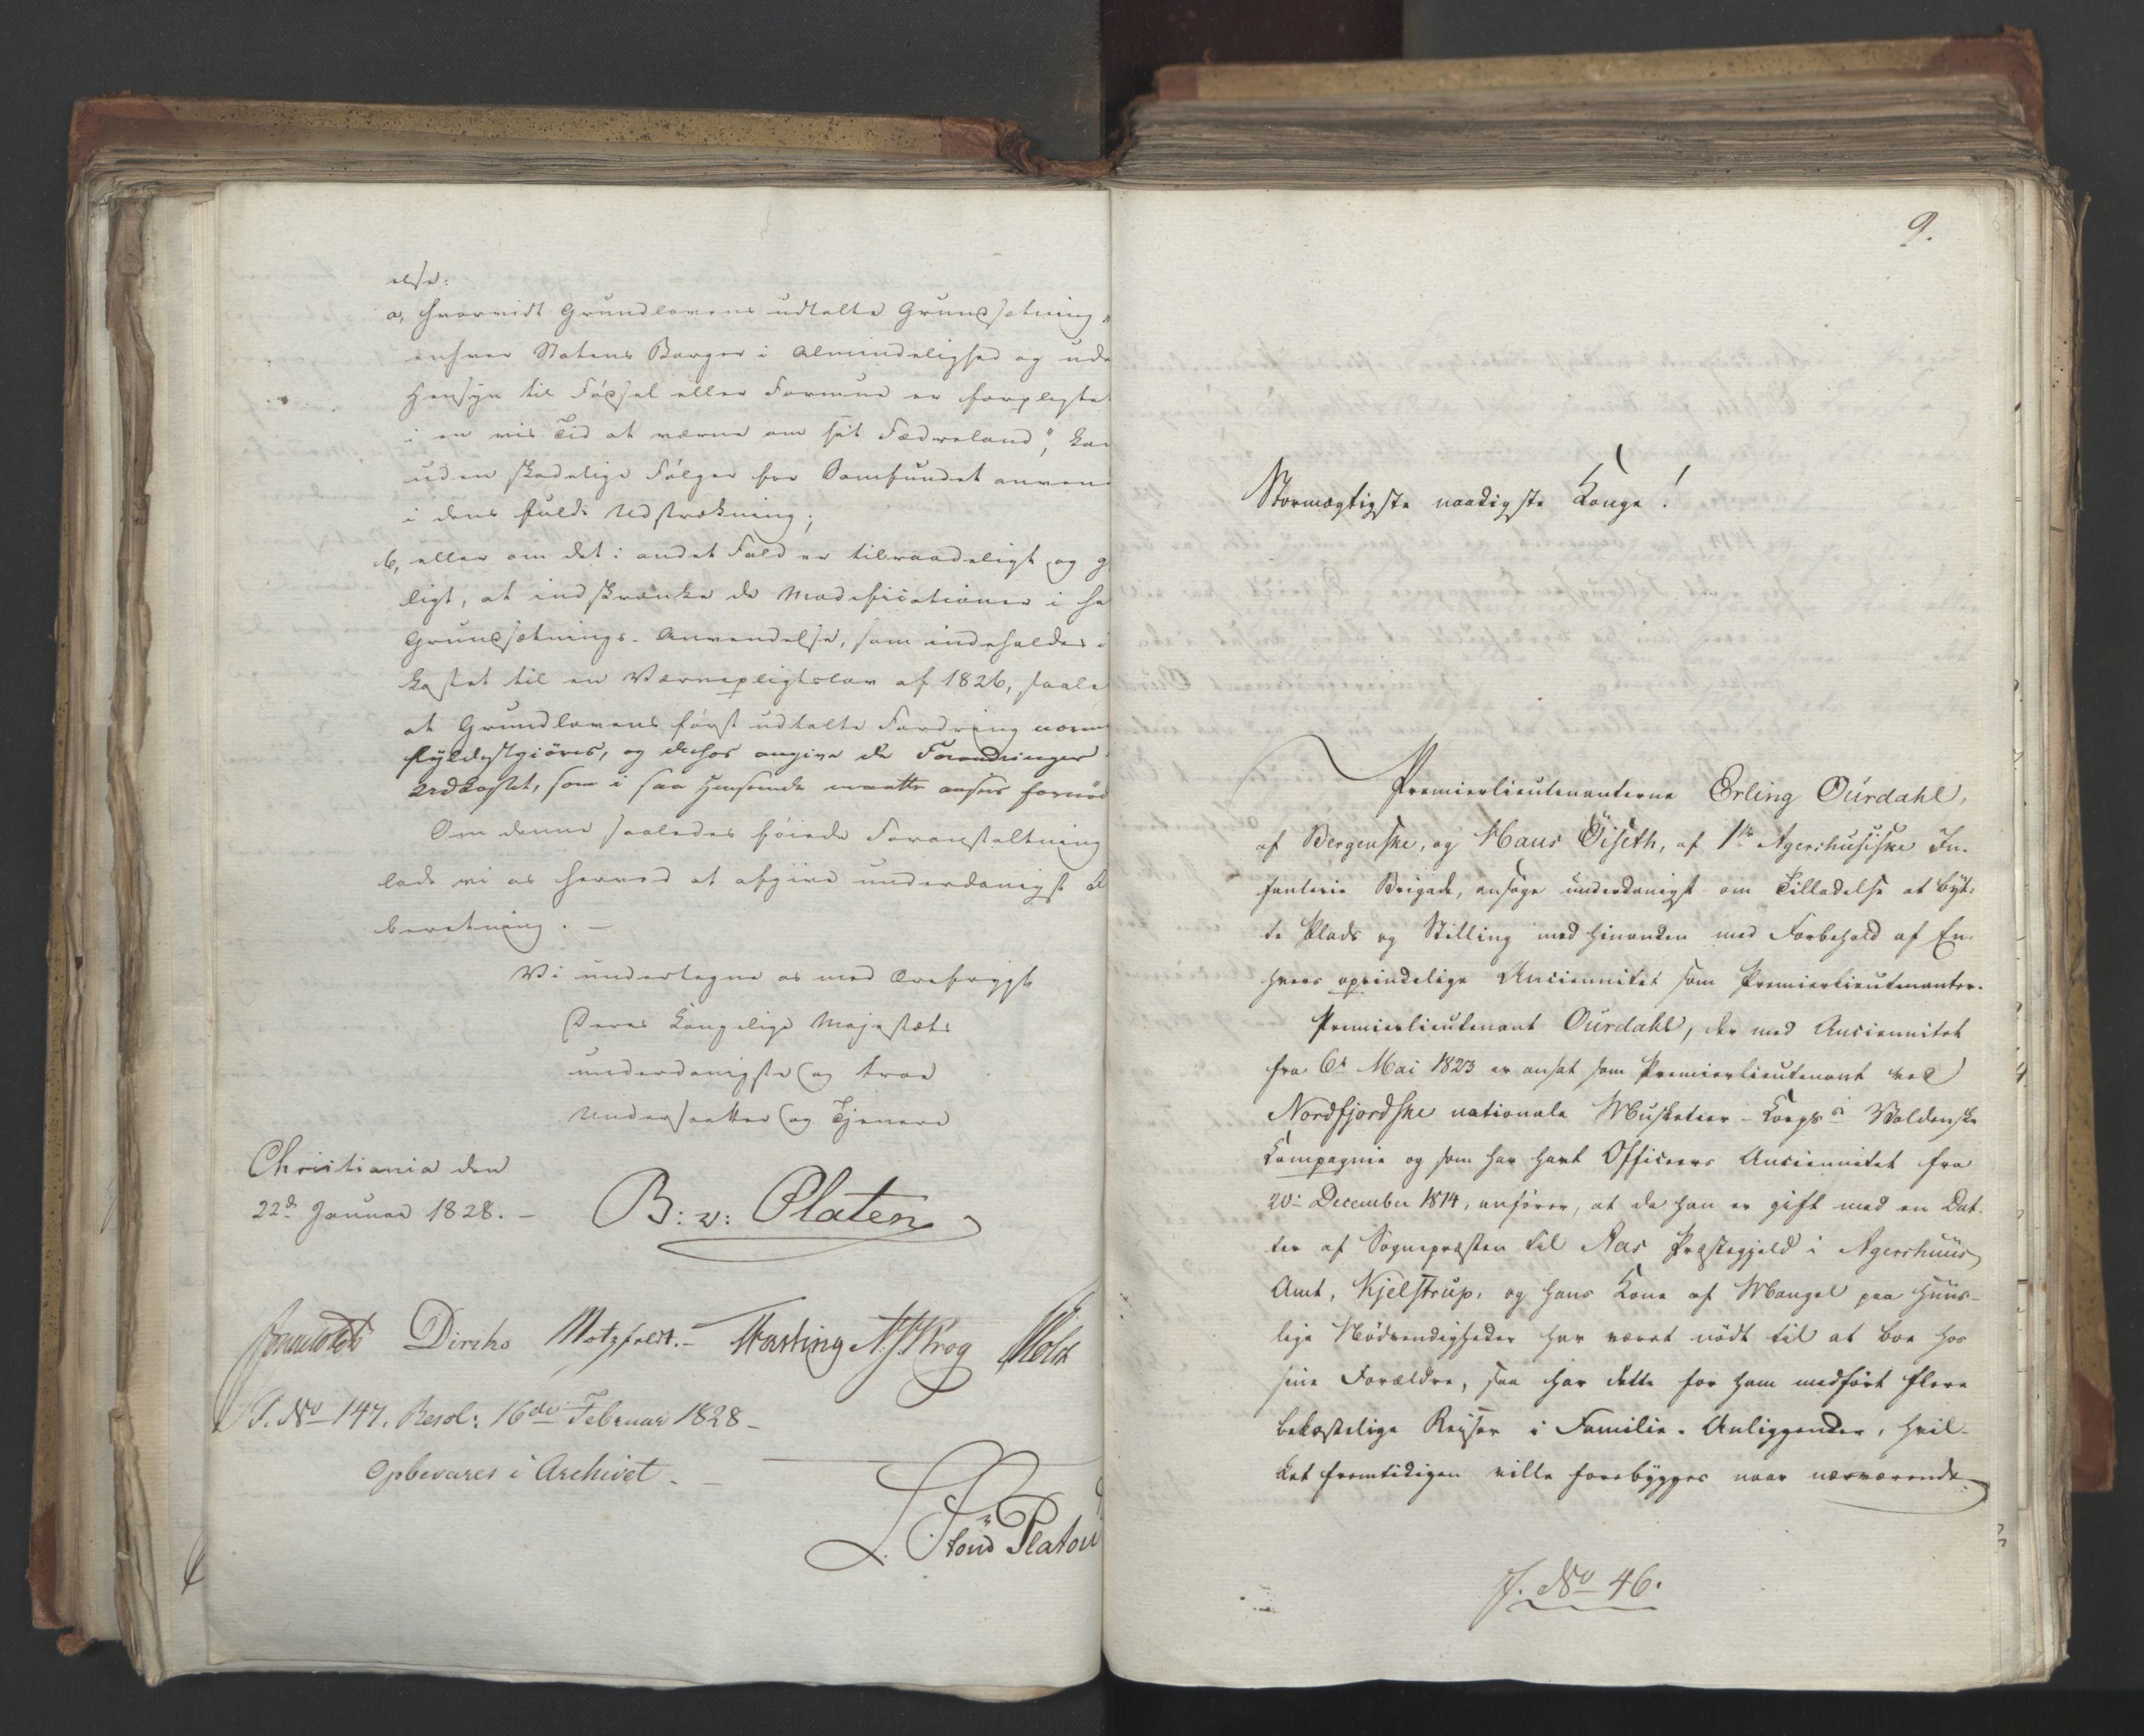 else:
a, hvorvidt Grundlovens udtalte Grundsetning "
enhver Statens Borger i Almindelighed og ude
Hensyn til Födsel eller Formue er forpligtet
i en vis Tid at værne om sit Fædreland", kan
uden skadelige Fölger for Samfundet anven
i dens fulde Udstrækning;
b, eller om det i andet Fald er tilraadeligt og g
ligt, at indskrænke de Modificationer i
Grundsætnings-Anvendelse, som indeholdes i
kastet til en Værnepligtslov af 1826, saale
at Grundlovens först udtalte Fordring
fyldestgiöres, og derhos angive de Forandringer
Udkastet, som i saa Henseende maatte ansees fornöd
Om denne saaledes föiede Foranstaltning
lade vi os herved at afgive underdanigst
beretning. –
Vi undertegne os med Ærefrygt
Deres Kongelige Majestæts
underdanigste og troe
Undersaatter og Tjenere
Christiania den
22de Januar 1828. –
B: v: Platen
Diriks Motzfeldt. – Fasting N. J. Krog Holst
J. No 147. Resol: 16de Februar 1828 –
Opbevares i Archivet. –
L. Stoud Platou
9.
Stormægtigste naadigste Konge!
Premierlieutenanterne Erling Ourdahl,
af Bergenske, og Hans Öiseth, af 1ste Agershusiske In-
fanterie Brigade, ansöge underdanigst om Tilladelse at byt-
te Plads og Stilling med hinanden med Forbehold af En-
hvers oprindelige Anciennitet som Premierlieutenanter.
Premierlieutenant Ourdahl, der med Anciennitet
fra 6te Mai 1823 er ansat som Premierlieutenant ved
Nordfjordske nationale Musketeer-Corps's Voldenske
Compagnie og som har havt Officeers Anciennitet fra
20de December 1814, anförer, at da han er gift med en Dat-
ter af Sognepræsten til Aas Præstegjeld i Agershuus
Amt, Kjelstrup, og hans Kone af Mangel paa huus-
lige Nödvendigheder har været nödt til at boe hos
sine Forældre, saa har dette for ham medfört flere
bekostelige Reiser i Familie-Anliggender, hvil-
ket fremtidigen ville forebygges naar nærværende
J. No 46.